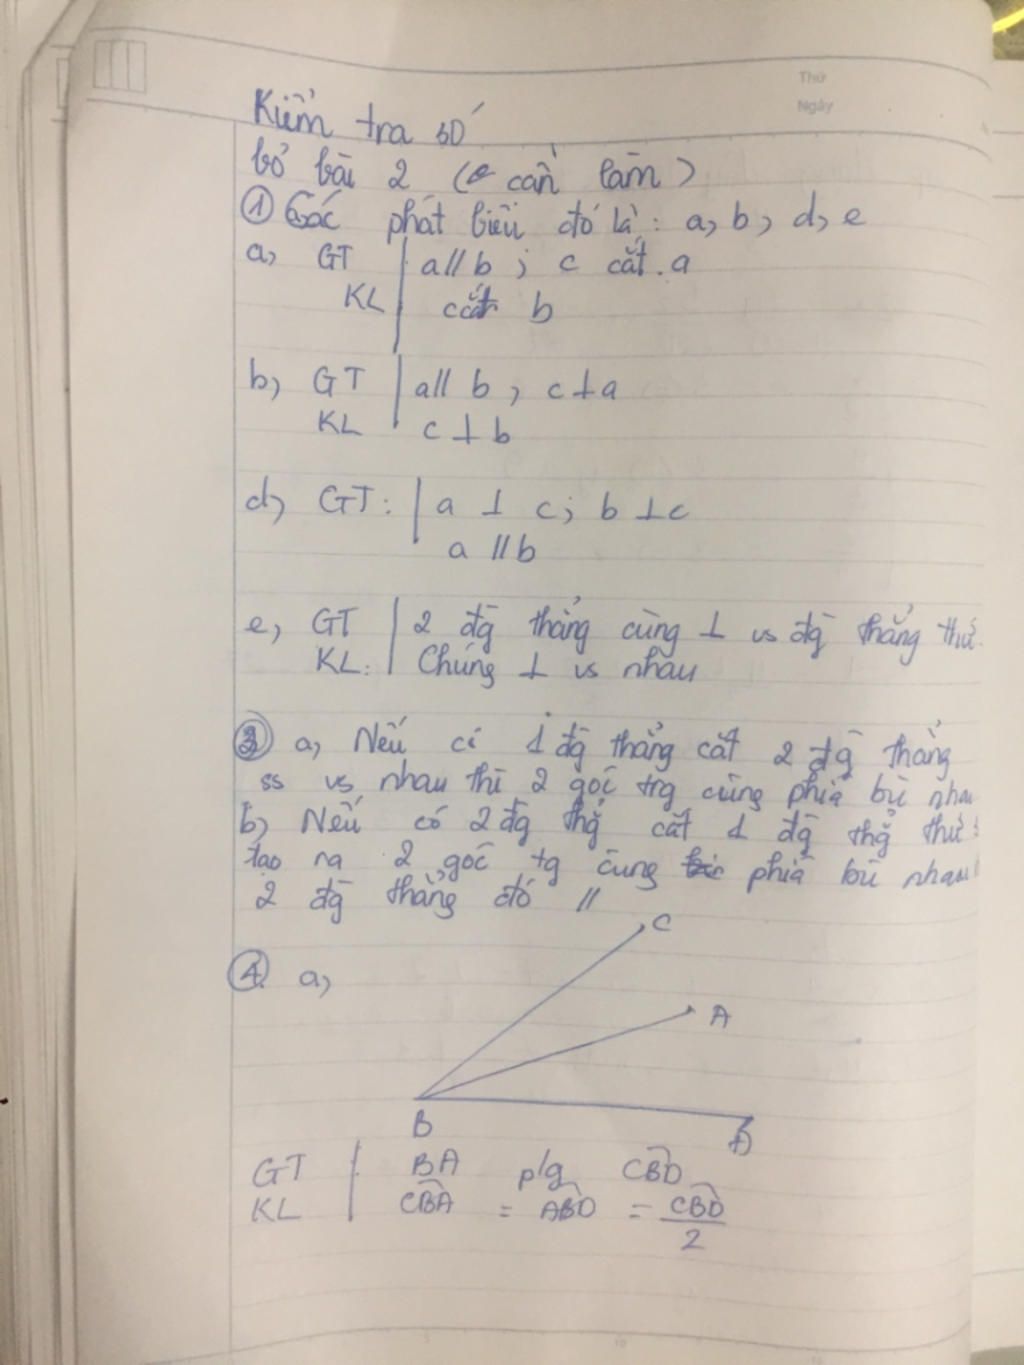 Thứ
Ngày
Kiểm tra số
bỏ bài 2 ( cần làm)
① Các phát biểu đó là: a, b, d, e
a, GT | a // b ; c cắt a
KL | cắt b
b, GT | a // b , c ⊥ a
KL | c ⊥ b
d, GT: | a ⊥ c; b ⊥ c
a // b
e, GT | 2 đg thẳng cùng ⊥ vs đg thẳng thứ
KL: | Chúng ⊥ vs nhau
③ a, Nếu có 1 đg thẳng cắt 2 đg thẳng
ss vs nhau thì 2 góc trg cùng phía bù nhau
b, Nếu có 2 đg thg cắt 1 đg thg thứ 3
tạo ra 2 góc tg cùng phía bù nhau
2 đg thẳng đó //
④ a,
C
A
B
D
GT | BA p/g CBD
KL | CBA = ABD = CBD/2